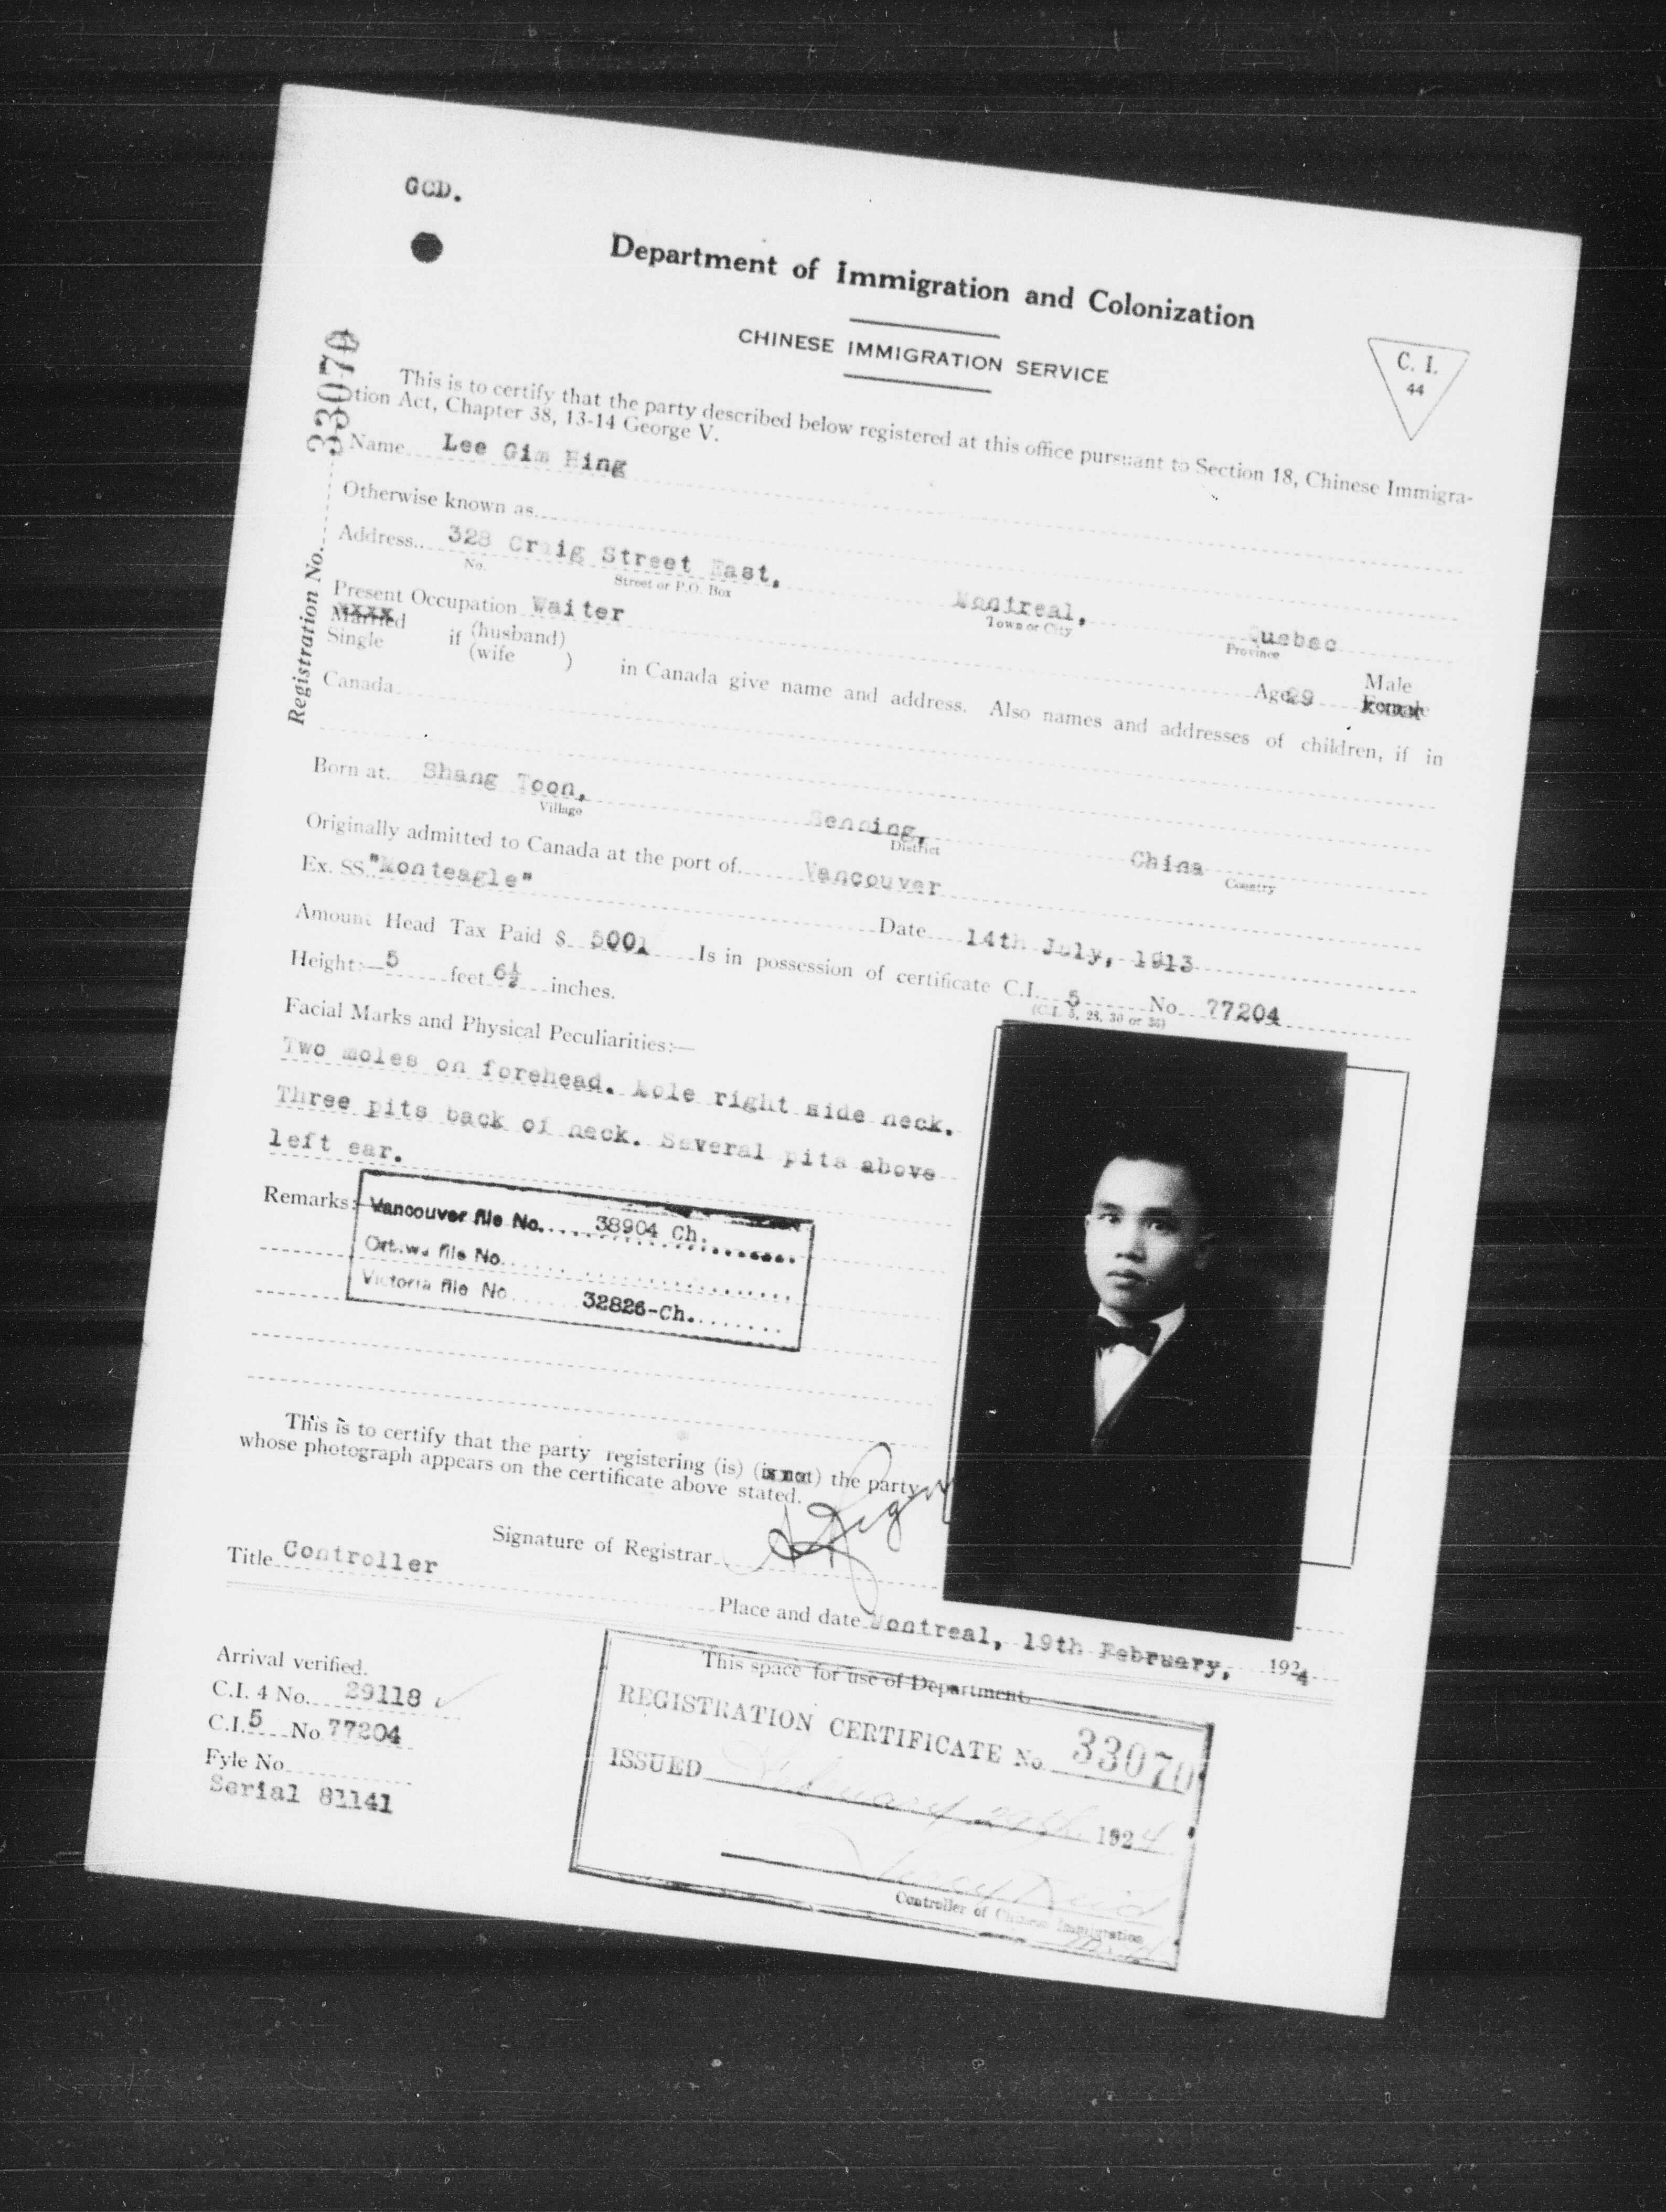 GCD.
Department of Immigration and Colonization
CHINESE IMMIGRATION SERVICE
C. I.
44
Registration No. 33070
This is to certify that the party described below registered at this office pursuant to Section 18, Chinese Immigra-
tion Act, Chapter 38, 13-14 George V.
Name Lee Gim
Otherwise known as
Address 328 Craig Street East, Montreal, Quebec
No. Street or P.O. Box Town or City Province
Present Occupation Waiter Age 29 Male
xxxx
Married Female
Single if (husband)
(wife ) in Canada give name and address. Also names and addresses of children, if in
Canada
Born at Shang Toon, China
Village District Country
Originally admitted to Canada at the port of Vancouver
Ex. SS "Monteagle" Date 14th July, 1913
Amount Head Tax Paid $ 500 Is in possession of certificate C.I. 5 No 77204
(C.I. 5, 28, 30 or 36)
Height:— 5 feet 6½ inches.
Facial Marks and Physical Peculiarities:—
Two moles on forehead. Mole right side neck.
Three pits back of neck. Several pits above
left ear.
Remarks:
Vancouver file No. 38904 Ch.
Ottawa file No.
Victoria file No. 32826-Ch.
This is to certify that the party registering (is) (is not) the party
whose photograph appears on the certificate above stated.
Signature of Registrar
Title Controller
Place and date Montreal, 19th February, 1924
This space for use of Department
Arrival verified.
C.I. 4 No. 29118
C.I. 5 No 77204
Fyle No.
Serial 81141
REGISTRATION CERTIFICATE No. 33070
ISSUED February 29th 1924
Controller of Chinese Immigration